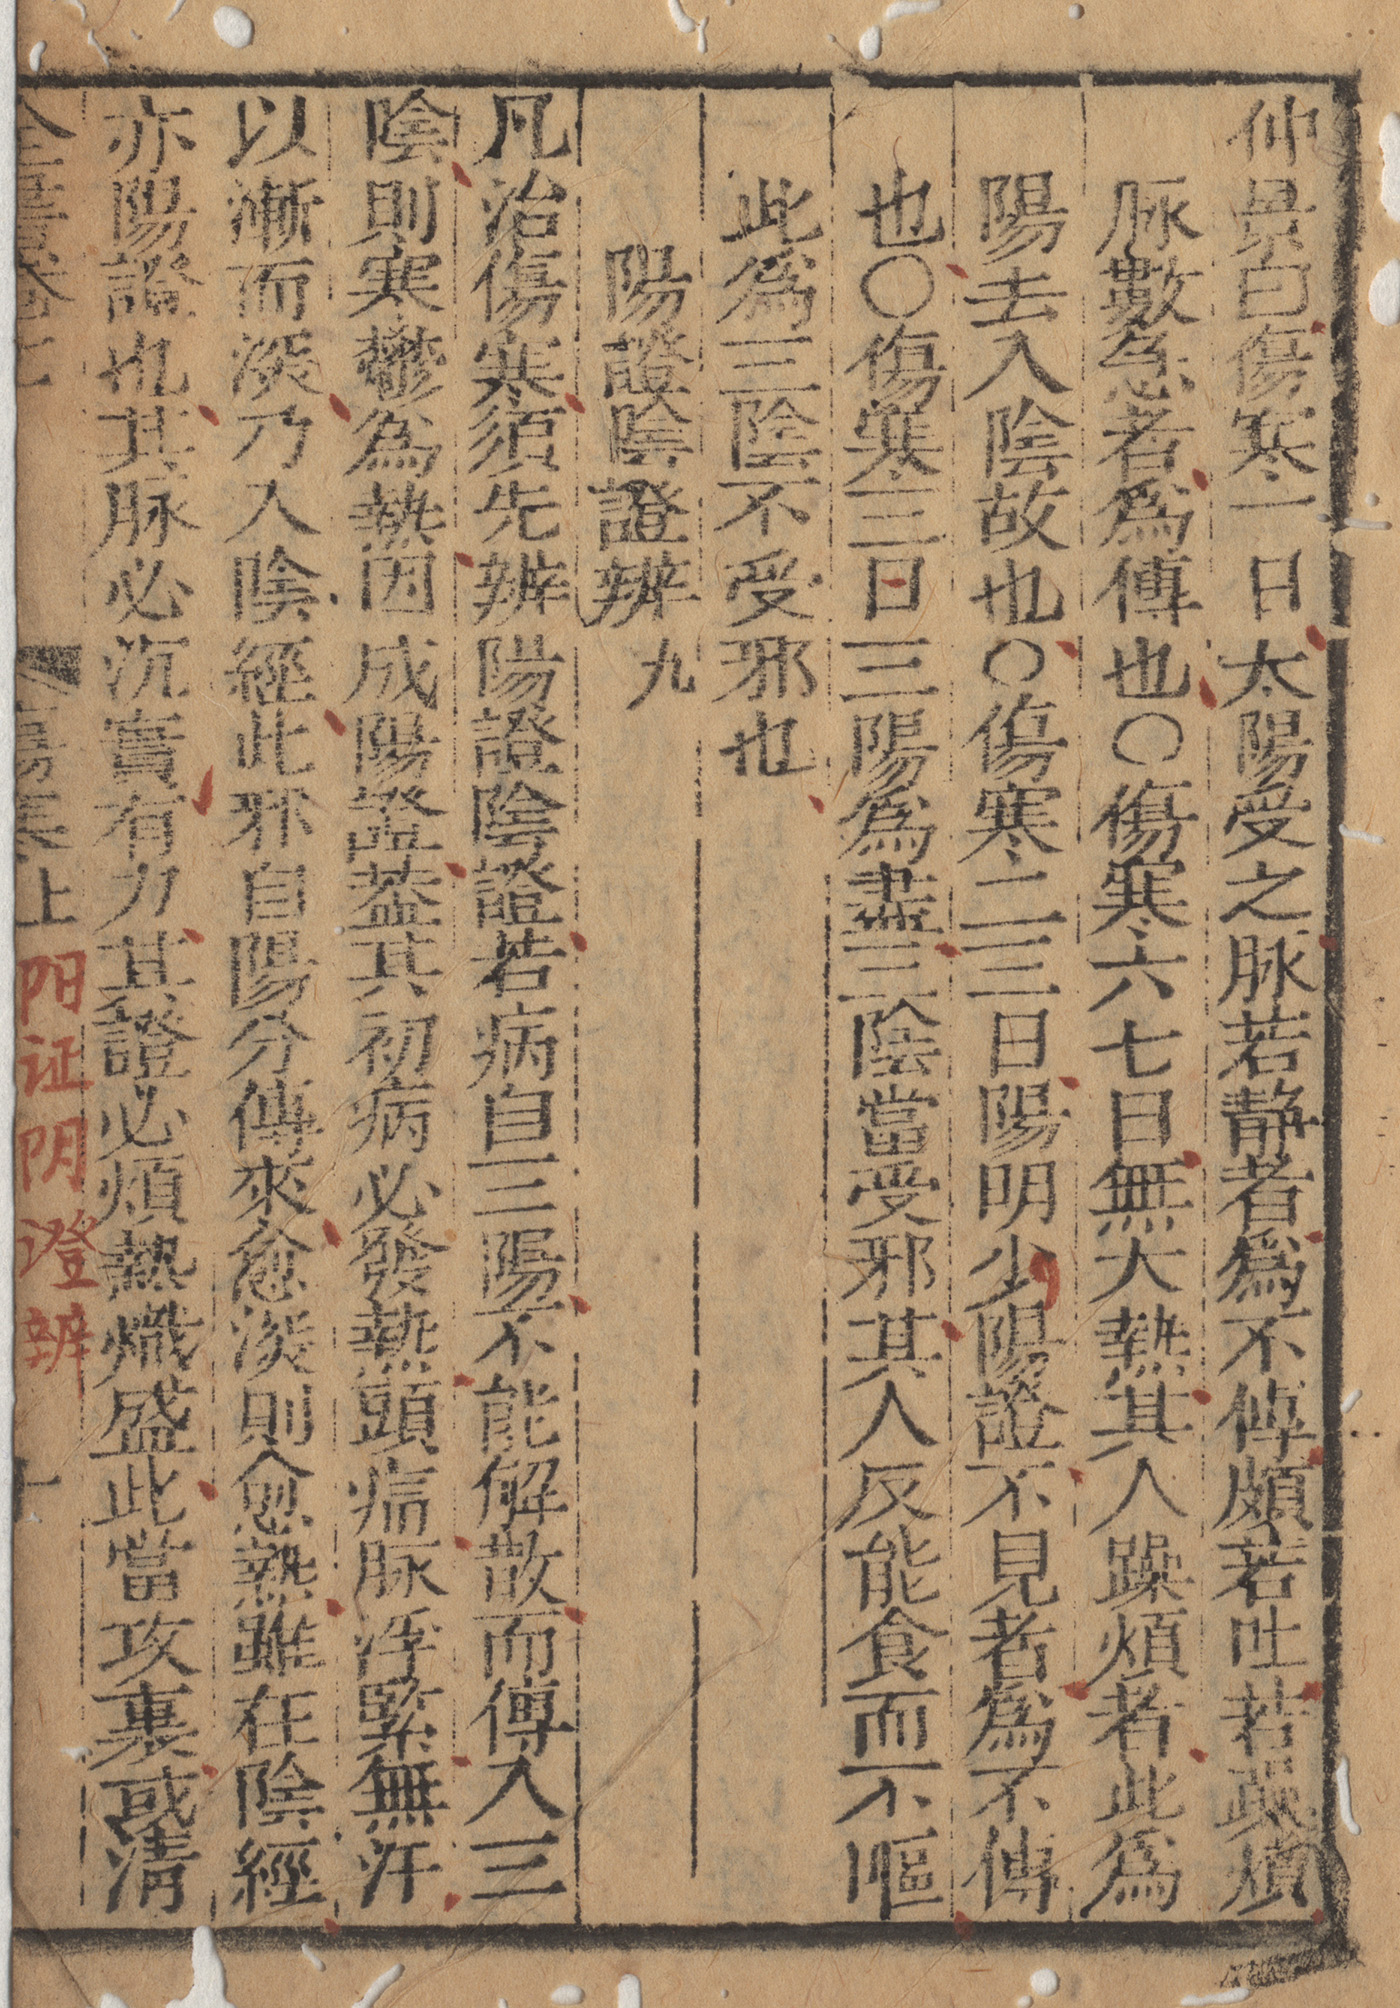 仲景曰傷寒一日太陽受之脉若静者爲不傳頗若吐若躁煩
脉數急者爲傳也〇傷寒六七日無大熱其人躁煩者此爲
陽去入陰故也〇傷寒二三日陽明少陽證不見者為不傳
也〇傷寒三日三陽爲盡三陰當受邪其人反能食而不嘔
此爲三陰不受邪也
陽證陰證辨 九
凡治傷寒須先辨陽證陰證若病自三陽不能解散而傳入三
陰則寒鬱為熱因成陽證葢其初病必發熱頭痛脉浮緊無汗
以漸而深乃入陰經此邪自陽分傳來愈深則愈熱雖在陰經
亦陽證也其脉必沉實有力其證必煩熱熾盛此當攻裏或清
上
阳证阴澄辨
十